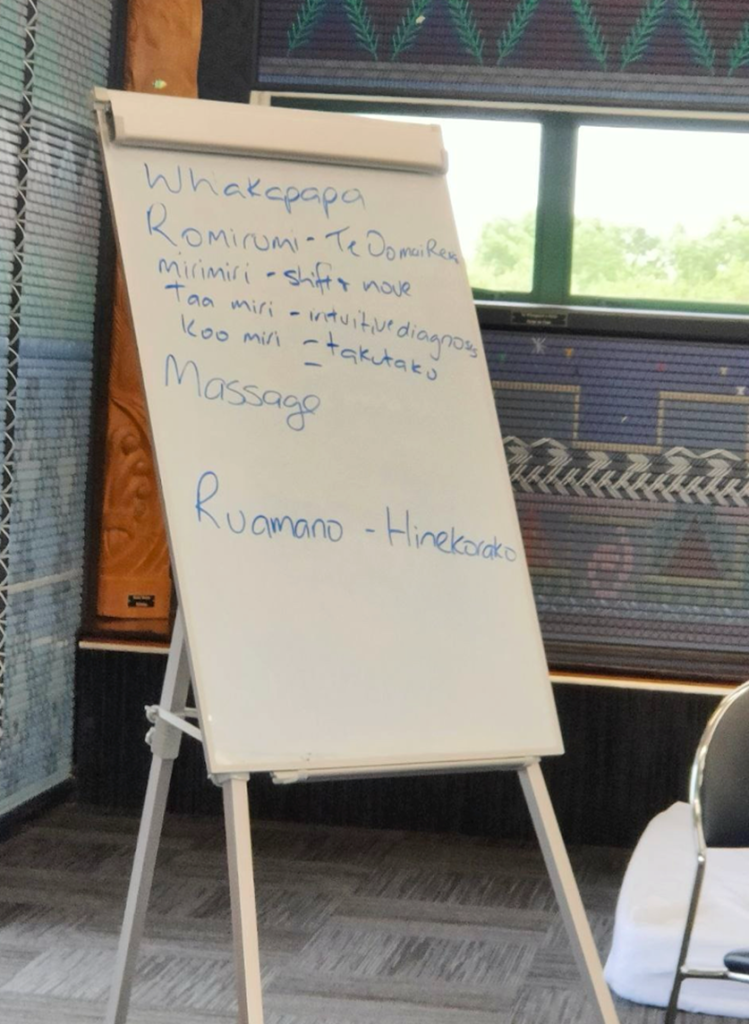 Whakapapa
Romiromi - Te Oomai Reia
mirimiri - shift & move
taa miri - intuitive diagnosis
Koo miri - takutaku
Massage
Ruamano - Hinekorako